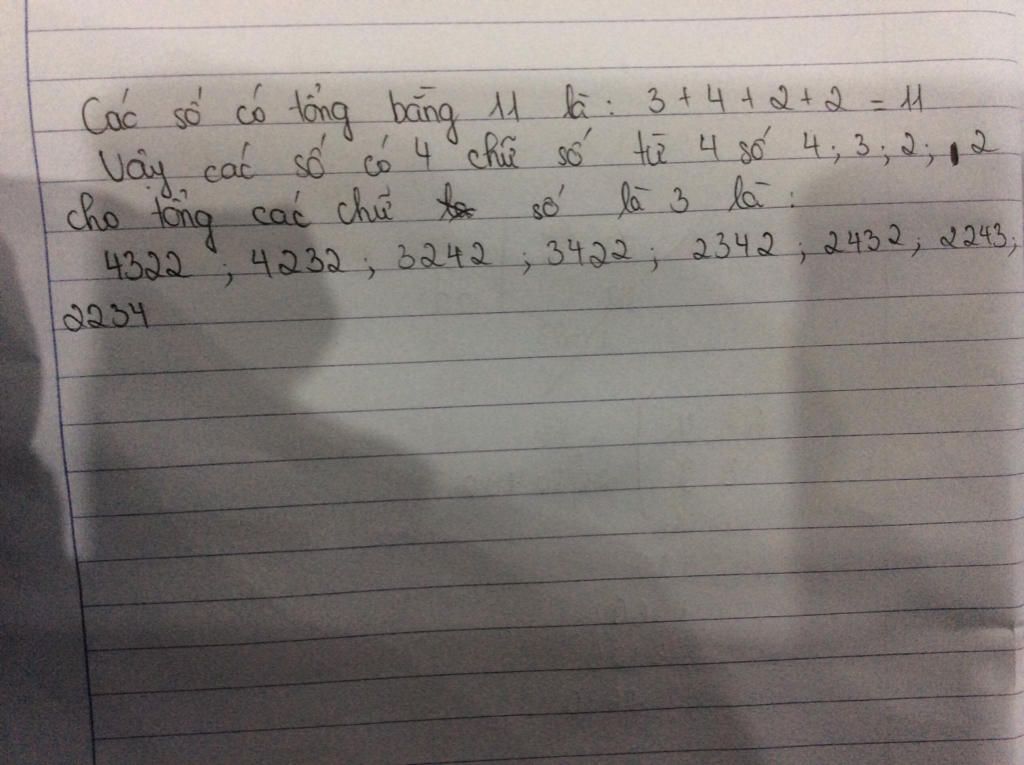 Các số có tổng bằng 11 là : 3 + 4 + 2 + 2 = 11
Vậy các số có 4 chữ số từ 4 số 4 ; 3 ; 2 ; 2
cho tổng các chữ số là 3 là :
4322 ; 4232 ; 3242 ; 3422 ; 2342 ; 2432 ; 2243 ;
2234